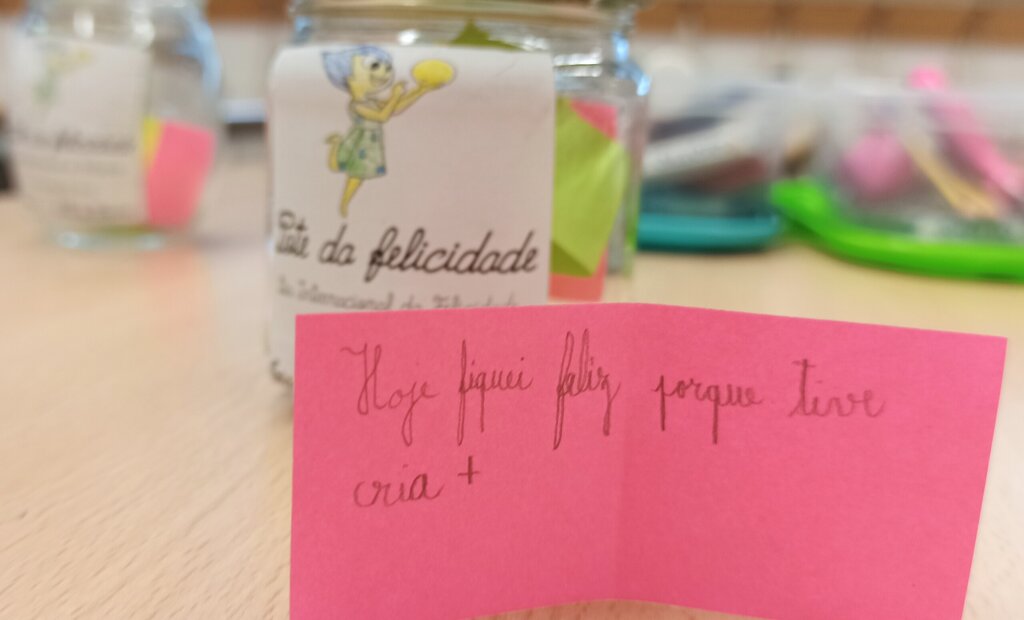 Pote da felicidade
Dia Internacional da Felicidade
Hoje fiquei feliz porque tive
cria +